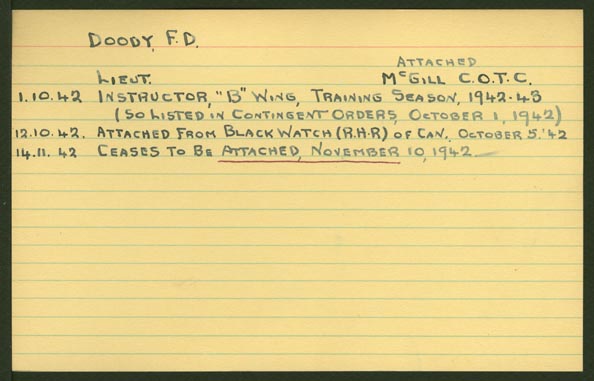 DOODY, F.D.
ATTACHED
LIEUT. McGILL C.O.T.C.
1.10.42 INSTRUCTOR, "B" WING, TRAINING SEASON, 1942-43
(SO LISTED IN CONTINGENT ORDERS, OCTOBER 1, 1942)
12.10.42. ATTACHED FROM BLACK WATCH (R.H.R) OF CAN. OCTOBER 5. '42
14.11.42 CEASES TO BE ATTACHED, NOVEMBER 10, 1942